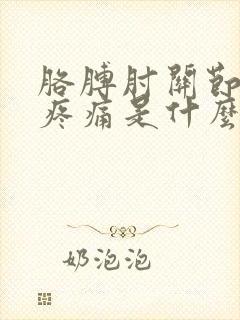 胳膊肘關節
疼痛是什麼
奶泡泡